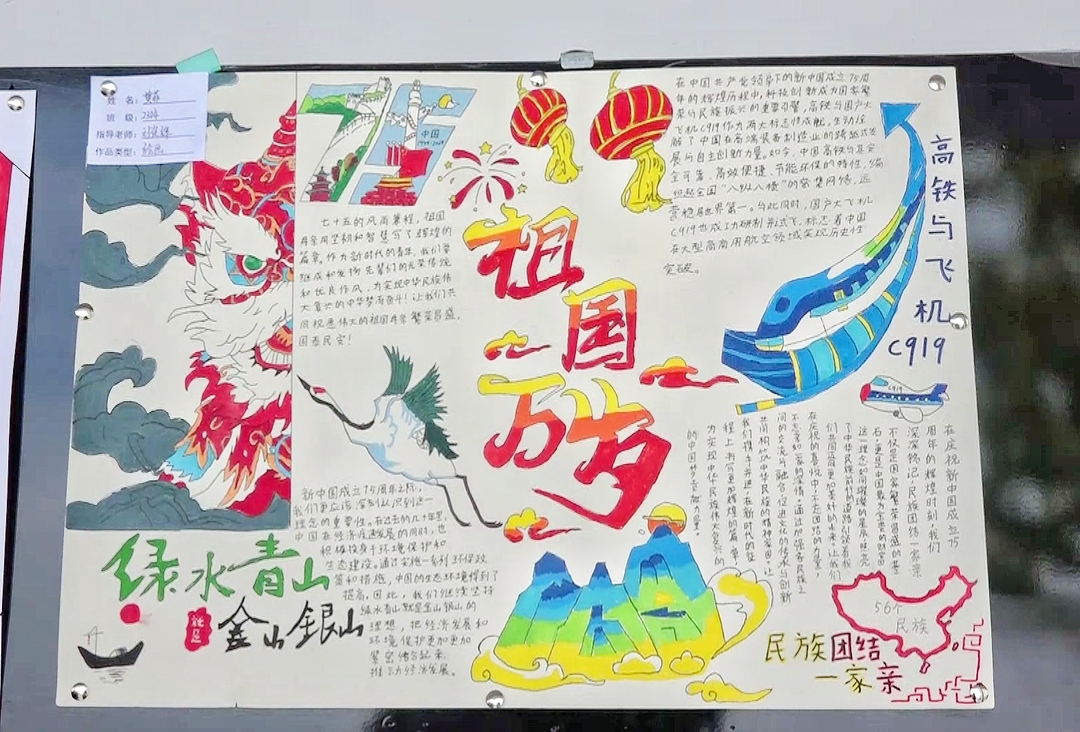 姓 名:
班 级:
指导老师:
作品类型:
75
中国
1949-2024
七十五的风雨兼程，祖国
母亲用坚韧和智慧写了辉煌的
篇章。作为新时代的青年，我们要
继承和发扬先辈们的光荣传统
和优良作风，为实现中华民族伟
大复兴的中华梦而奋斗！让我们共
同祝愿伟大的祖国母亲繁荣昌盛，
国泰民安！
祖国万岁
在中国共产党领导下的新中国成立75周
年的辉煌历程中，科技创新成为国家繁
荣与民族振兴的重要引擎，高铁与国产大
飞机C919作为两大标志性成就，生动诠
释了中国在高端装备制造业的跨越式发
展与自主创新力量。如今，中国高铁以其安
全可靠、高效便捷、节能环保的特性，
织起全国“八纵八横”的密集网络，运
营稳居世界第一。与此同时，国产大飞机
C919也成功研制并试飞，标志着中国
在大型商用航空领域实现历史性
突破。
高铁与飞机
C919
C919
新中国成立75周年之际，
我们更应该深刻认识到这一
理念的重要性。在过去的几十年里，
中国在经济疾速发展的同时，也
积极投身于环境保护和
生态建设。通过实施一系列环保政
策和措施，中国的生态环境得到了
提高，因此，我们继续坚持
绿水青山就是金山银山的
理想，把经济发展和
环境保护更加更加
紧密结合起来，
推动经济发展。
绿水青山
就是
金山銀山
在庆祝新中国成立75
周年的辉煌时刻我们
深深铭记，民族团结一家亲
不仅是国家繁荣昌盛的基
石，更是中国最为宝贵的财富
这一理念如同璀璨的星辰，照亮
了中华民族前行的道路，引领着我
们共同迈向更加美好的未来让我们
在庆祝的喜悦中，不忘团结的力量，
不忘各族一家的深情。通过加强各民族之
间的交流与融合，促进文化的传承与创新
共同构筑中华民族的精神家园，让
我们携手并进，在新时代的征
程上书写更加辉煌的篇章
为实现中华民族伟大复兴的
的中国梦贡献力量。
56个
民族
民族团结
一家亲